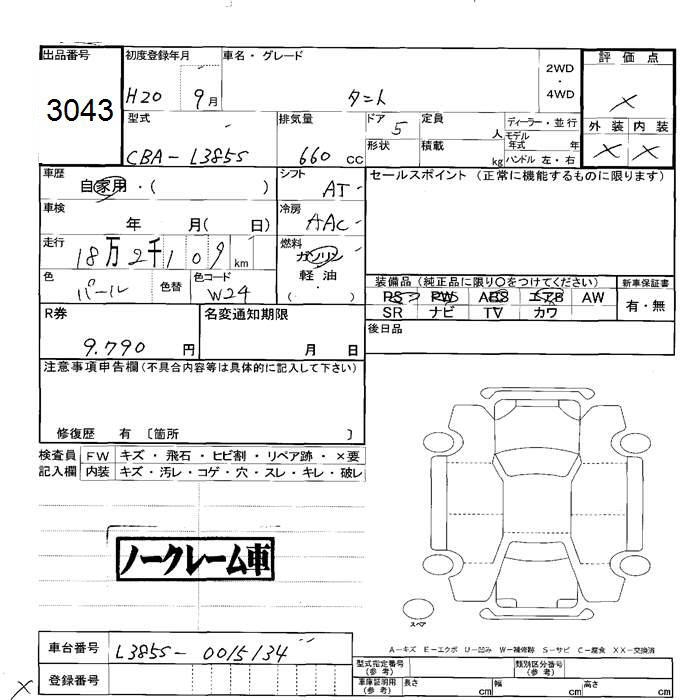 出品番号 初度登録年月 車名・グレード 2WD・4WD 評価点
3043 H20 9月 タント ×
型式 排気量 ドア 5 定員 人 ディーラー・並行 外装 内装
モデル年式 年
CBA-L385S 660cc 形状 積載 kg ハンドル 左・右 × ×
車歴 自家用・( ) シフト AT セールスポイント(正常に機能するものに限ります)
車検 年 月( 日) 冷房 AAC
走行 18万2千109km 燃料 ガソリン
軽油
( )
色 パール 色替 色コード W24 装備品(純正品に限り○をつけてください) 新車保証書
PS PW ABS エアB AW 有・無
SR ナビ TV カワ
R券 名変通知期限 後日品
9.790円 月 日
注意事項申告欄(不具合内容等は具体的に記入して下さい)
修復歴 有 〔箇所 〕
検査員 FW キズ・飛石・ヒビ割・リペア跡・×要
記入欄 内装 キズ・汚レ・コゲ・穴・スレ・キレ・破レ
ノークレーム車
スペア
A-キズ E-エクボ U-凹み W-補修跡 S-サビ C-腐食 XX-交換済
車台番号 L385S-0015134
型式指定番号(参考) 類別区分番号(参考)
登録番号 車庫証明用(参考) 長さ cm 幅 cm 高さ cm
×